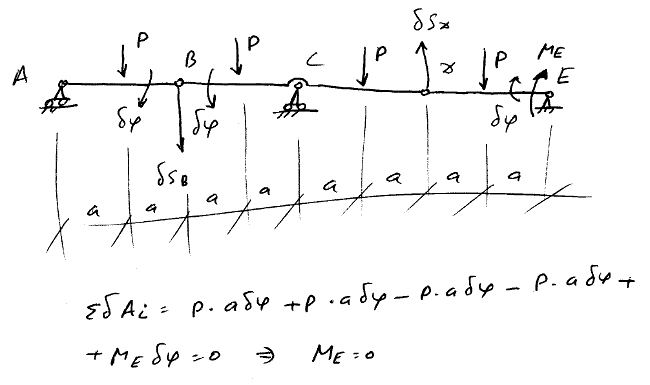 δS𝒟
P B P C P 𝒟 P M_E
A E
δφ δφ δφ
δS_B
a a a a a a a a
ΣδA_i = P·aδφ + P·aδφ − P·aδφ − P·aδφ +
+ M_E δφ = 0 ⇒ M_E = 0